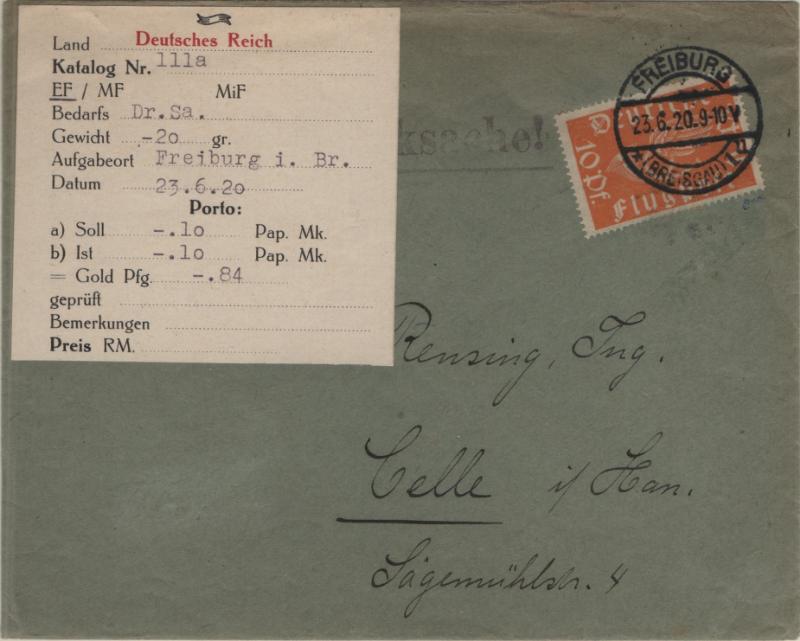 Land Deutsches Reich
Katalog Nr. 111a
EF / MF MiF
Bedarfs Dr.Sa.
Gewicht -20 gr.
Aufgabeort Freiburg i. Br.
Datum 23.6.20
Porto:
a) Soll -.10 Pap. Mk.
b) Ist -.10 Pap. Mk.
= Gold Pfg. -.84
geprüft
Bemerkungen
Preis RM.
ksache!
FREIBURG
23.6.20.9-10V
* (BREISGAU) 1
10 Pf.
Rensing, Ing.
Celle i/Han.
Sägemühlstr. 4